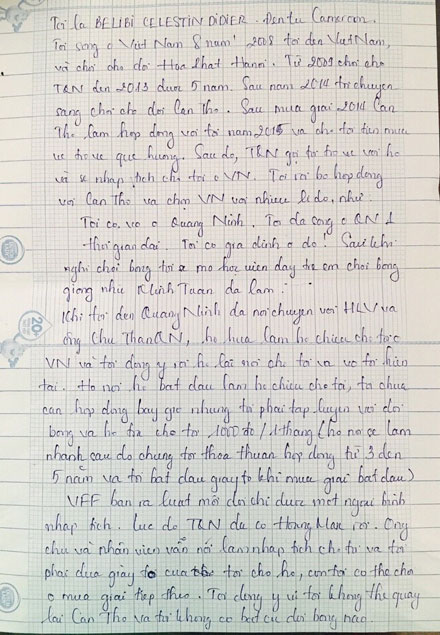 Tôi là BELIBI CELESTIN DIDIER. Đến từ Cameroon.
Tôi sống ở Việt Nam 8 năm. 2008 tôi đến Việt Nam,
và chơi cho đội Hòa Phát Hanoi. Từ 2009 chơi cho
TQN đến 2013 được 5 năm. Sau năm 2014 tôi chuyển
sang chơi cho đội Cần Thơ. Sau mùa giải 2014 Cần
Thơ làm hợp đồng với tôi năm 2015 và cho tôi tiền mua
vé trở về quê hương. Sau đó, TQN gọi tôi trở về với họ
và sẽ nhập tịch cho tôi ở VN. Tôi rời bỏ hợp đồng
với Cần Thơ và chọn VN với nhiều lí do, như:
Tôi có vợ ở Quảng Ninh. Tôi đã sống ở QN 1
thời gian dài. Tôi có gia đình ở đó! Sau khi
nghỉ chơi bóng tôi sẽ mở học viện dạy trẻ em chơi bóng
giống như Minh Tuấn đã làm.
Khi tôi đến Quảng Ninh đã nói chuyện với HLV và
ông Chủ ThanQN, họ hứa làm hộ chiếu cho tôi ở
VN và tôi đồng ý rồi họ lại nói cho tôi và vợ tôi hiện
tại. Họ nói họ bắt đầu làm hộ chiếu cho tôi, tôi chưa
cần hợp đồng bây giờ nhưng tôi phải tập luyện với đội
bóng và họ trả cho tôi 1000 đô / 1 tháng (họ nói sẽ làm
nhanh sau đó chúng tôi thỏa thuận hợp đồng từ 3 đến
5 năm và tôi bắt đầu giấy tờ khi mùa giải bắt đầu)
VFF ban ra luật mỗi đội chỉ được một người hình
nhập tịch. Lúc đó TQN đã có Hoàng Max rồi. Ông
chủ và nhân viên vẫn nói làm nhập tịch cho tôi và tôi
phải đưa giấy tờ của tôi cho họ, còn tôi có thể chơi
ở mùa giải tiếp theo. Tôi đồng ý vì tôi không thể quay
lại Cần Thơ và tôi không có bất cứ đội bóng nào.